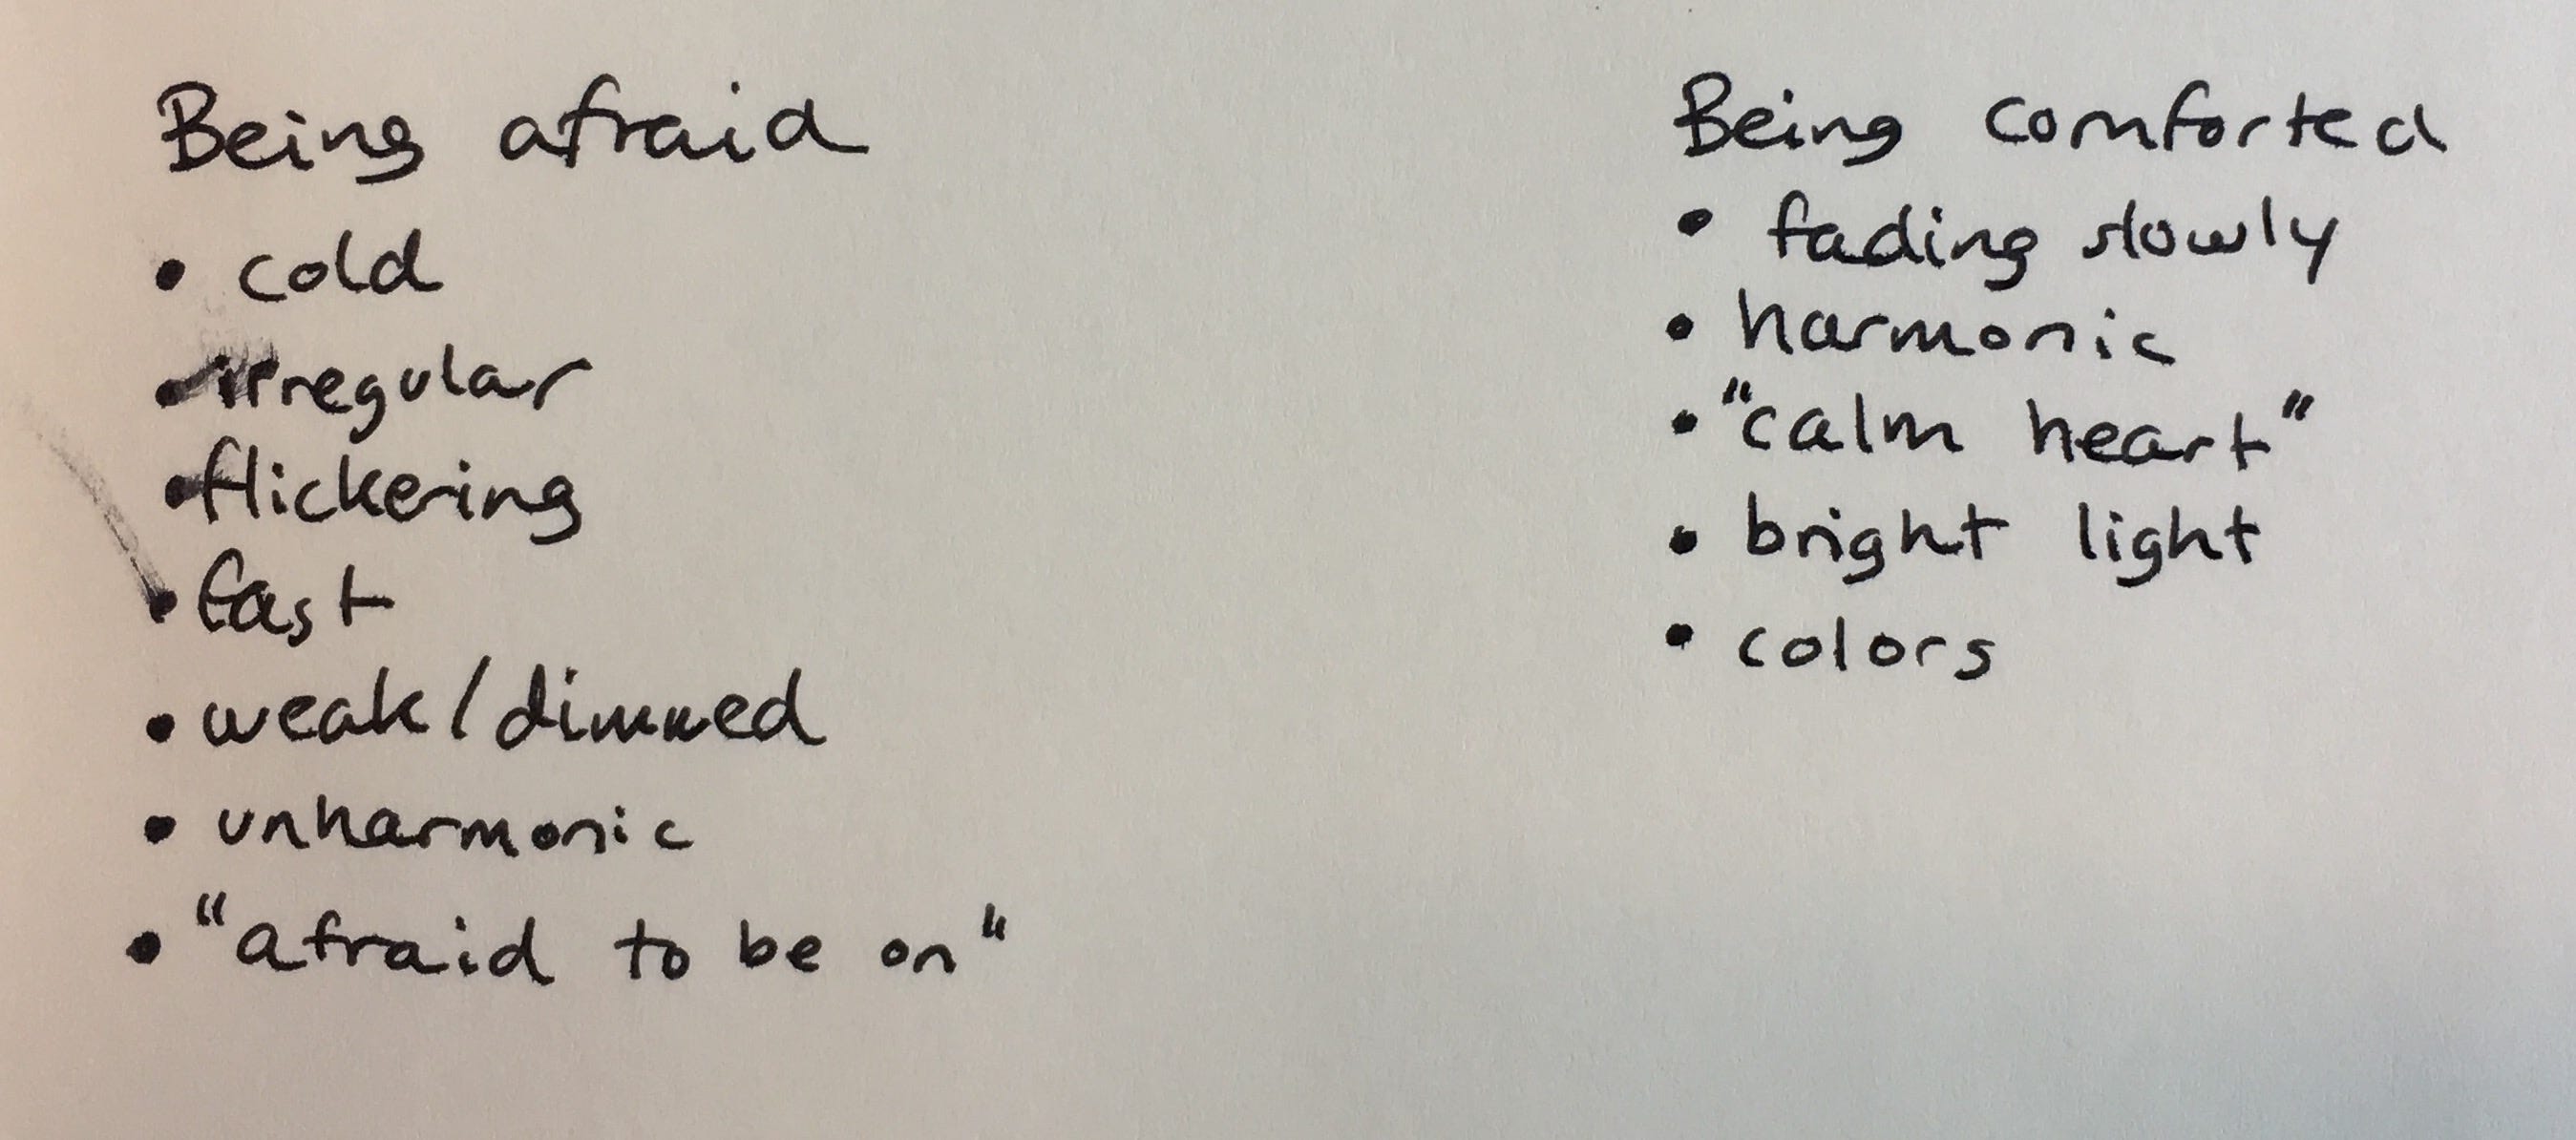 Being afraid
• cold
• irregular
• flickering
• fast
• weak/dimmed
• unharmonic
• "afraid to be on"
Being comforted
• fading slowly
• harmonic
• "calm heart"
• bright light
• colors